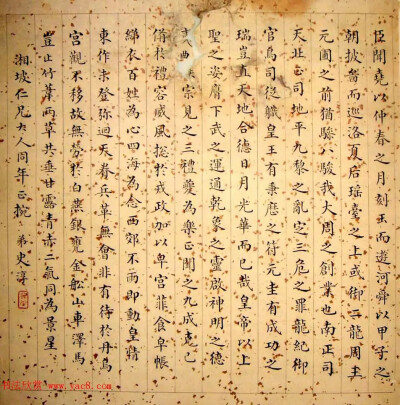 臣聞堯以仲春之月刻玉而遊河舜以甲子之
朝披圖而巡洛夏后瑤臺之上或御二龍周王
元圃之前猶驂八駿我大周之創業也南正司
天北正司地平九黎之亂定三危之罪龍紀御
官鳥司從職皇王有秉歷之符元圭有成功之
瑞豈直天地合德日月光華而已哉皇帝以上
聖之姿膺下武之運通乾象之靈啟神明之德
典宗見之三禮夔為樂正聞之九成克己
備於禮容威風總於戎政加以卑宮菲食皁帳
綈衣百姓為心四海為念西郊不雨即動皇情
東作未登彌迴天眷兵革無會非有待於丹烏
宮觀不移故無勞於白燕銀甕金船山車澤馬
豈止竹葦兩草共垂甘露青赤二氣同為景星
湘坡仁兄大人同年正腕 弟史淳
书法欣赏 www.yac8.com